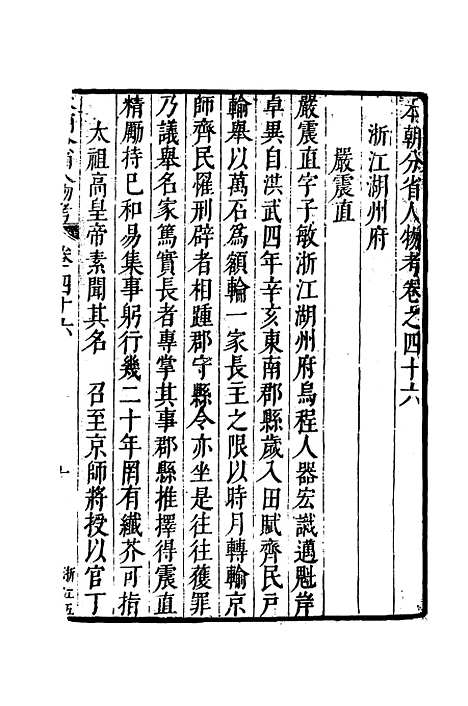 本朝分省人物考卷之四十六
浙江湖州府
嚴震直
嚴震直字子敏浙江湖州府烏程人器宏識邁魁岸
卓異自洪武四年辛亥東南郡縣歲入田賦齊民戸
輸舉以萬石爲額輪一家長主之限以時月轉輸京
師齊民罹刑辟者相踵郡守縣令亦坐是徃徃獲罪
乃議舉名家篤實長者專掌其事郡縣推擇得震直
精勵持已和易集事躬行幾二十年罔有纖芥可指
太祖高皇帝素聞其名 召至京師將授以官丁
人物考 卷四十六
浙江五